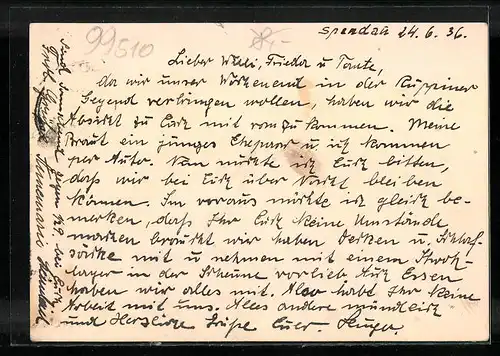 Spandau 24. 6. 36.
99510
Lieber Willi, Frieda u Tante,
da wir unser Wochenend in der Ruppiner
Gegend verbringen wollen, haben wir die
Absicht zu Euch mit ranzukommen. Meine
Braut ein junges Ehepaar u. ich kommen
per Auto. Nun möchte ich Euch bitten,
daß wir bei Euch über Nacht bleiben
können. Im voraus möchte ich gleich be-
merken, daß Ihr Euch keine Umstände
machen braucht wir haben Decken u. Schlaf-
säcke mit u nehmen mit einem Stroh-
lager in der Scheune vorlieb Auch Essen
haben wir alles mit. Also habt Ihr keine
Arbeit mit uns. Alles andere mündlich
und Herzliche Grüße Euer.
Sind Sonnabend gegen bei Euch
Annemarie